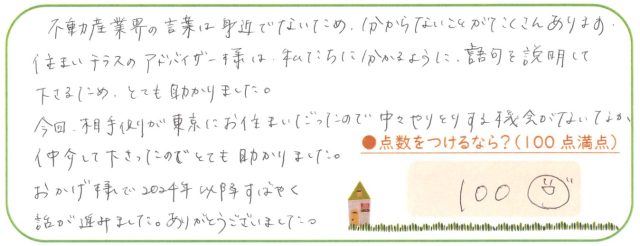 不動産業界の言葉は身近でないため、分からないことがたくさんあります。
住まいテラスのアドバイザー様は、私たちに分かるように、語句を説明して
下さるため、とても助かりました。
今回、相手側が東京にお住まいだったので中々やりとりする機会がないなか
仲介して下さったのでとても助かりました。
おかげ様で2024年以降すばやく
話が進みました。ありがとうございました。
●点数をつけるなら?(100点満点)
100